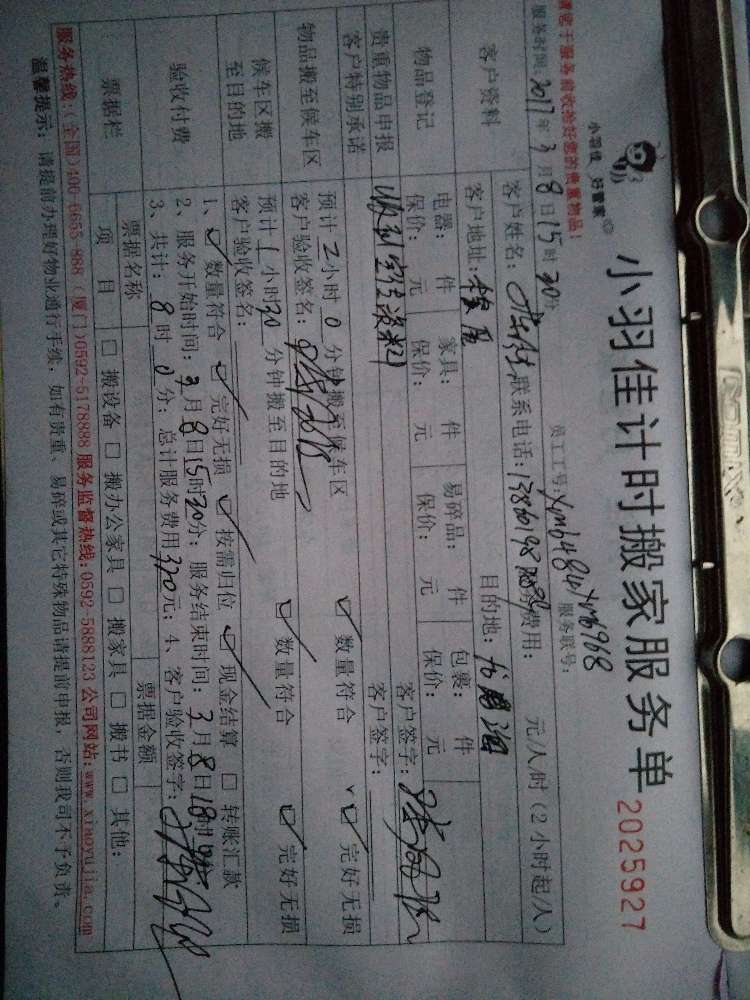 小羽佳计时搬家服务单
2025927
小羽佳 好管家
请您于服务前收拾好您的贵重物品!
员工工号:
服务联号:
服务时间:2017年3月8日15时30分
元/人时(2小时起/人)
客户资料
客户姓名:
联系电话:
费用:
客户地址:
目的地:
物品登记
电器: 件 家具: 件 易碎品: 件 包裹: 件
保价: 元 保价: 元 保价: 元 保价: 元
贵重物品申报
客户特别承诺
收到宣传资料
客户签字:
客户签字:
物品搬至候车区
预计2小时0分钟搬至候车区
☑数量符合 ☑完好无损
客户验收签名:
候车区搬
至目的地
预计1小时30分钟搬至目的地
☑数量符合 ☑完好无损
客户验收签名:
验收付费
1、☑数量符合 ☑完好无损 ☑按需归位 ☑现金结算 □转账汇款
2、服务开始时间:3月8日15时30分;服务结束时间:3月8日18时
3、共计:8时0分;总计服务费用320元;4、客户验收签字:
票据栏
票据名称
票据金额
项目 □搬设备 □搬办公家具 □搬家具 □搬书 □其他:
服务热线:(全国)400-6655-888 (厦门)0592-5178888 服务监督热线:0592-5888123 公司网站:www.xiaoyujia.com
温馨提示:请提前办理好物业通行手续,如有贵重、易碎或其它特殊物品请提前申报,否则我司不予负责。